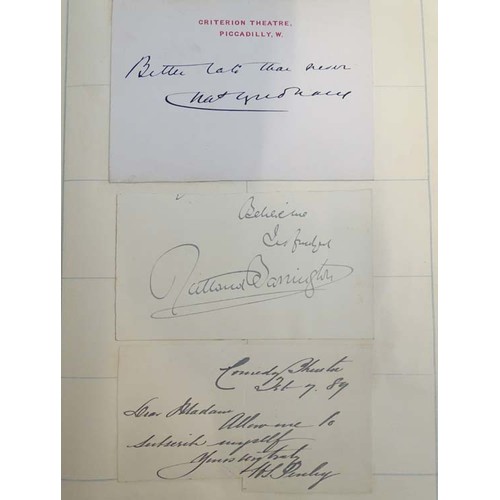 CRITERION THEATRE,
PICCADILLY, W.
Better late than never
Believe me
Rutland Barrington
Comedy Theatre
Feb 7. 89
Dear Madam
Allow me to
subscribe myself
Yours very truly
W S Penley